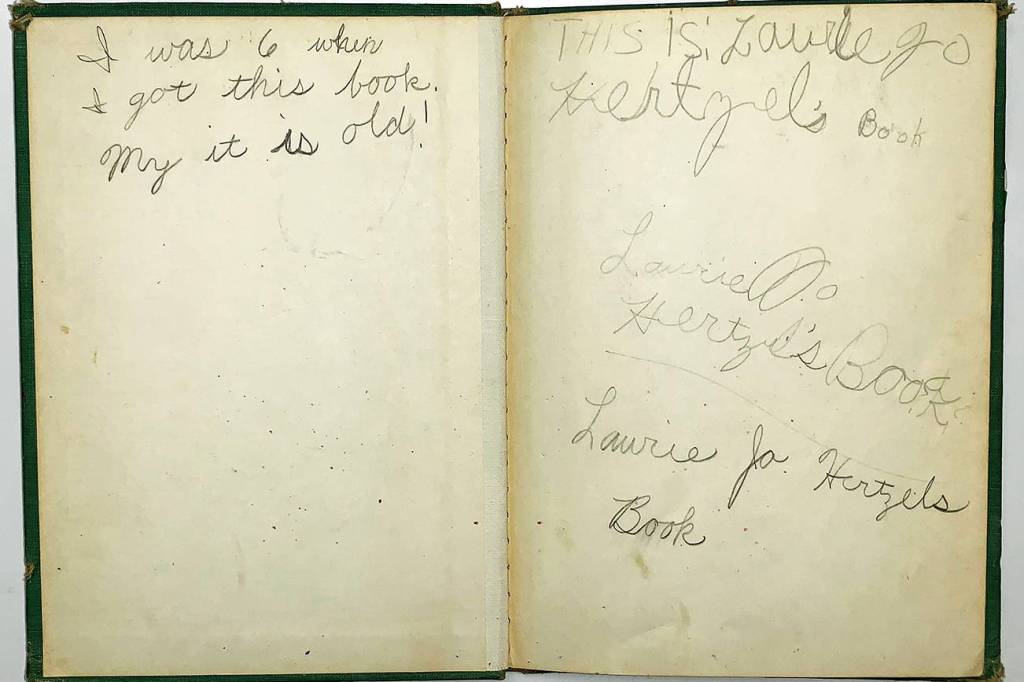 I was 6 when
I got this book.
My it is old!
THIS IS Laurie Jo
Hertzel's Book
Laurie Jo
Hertzel's Book
Laurie Jo Hertzels
Book